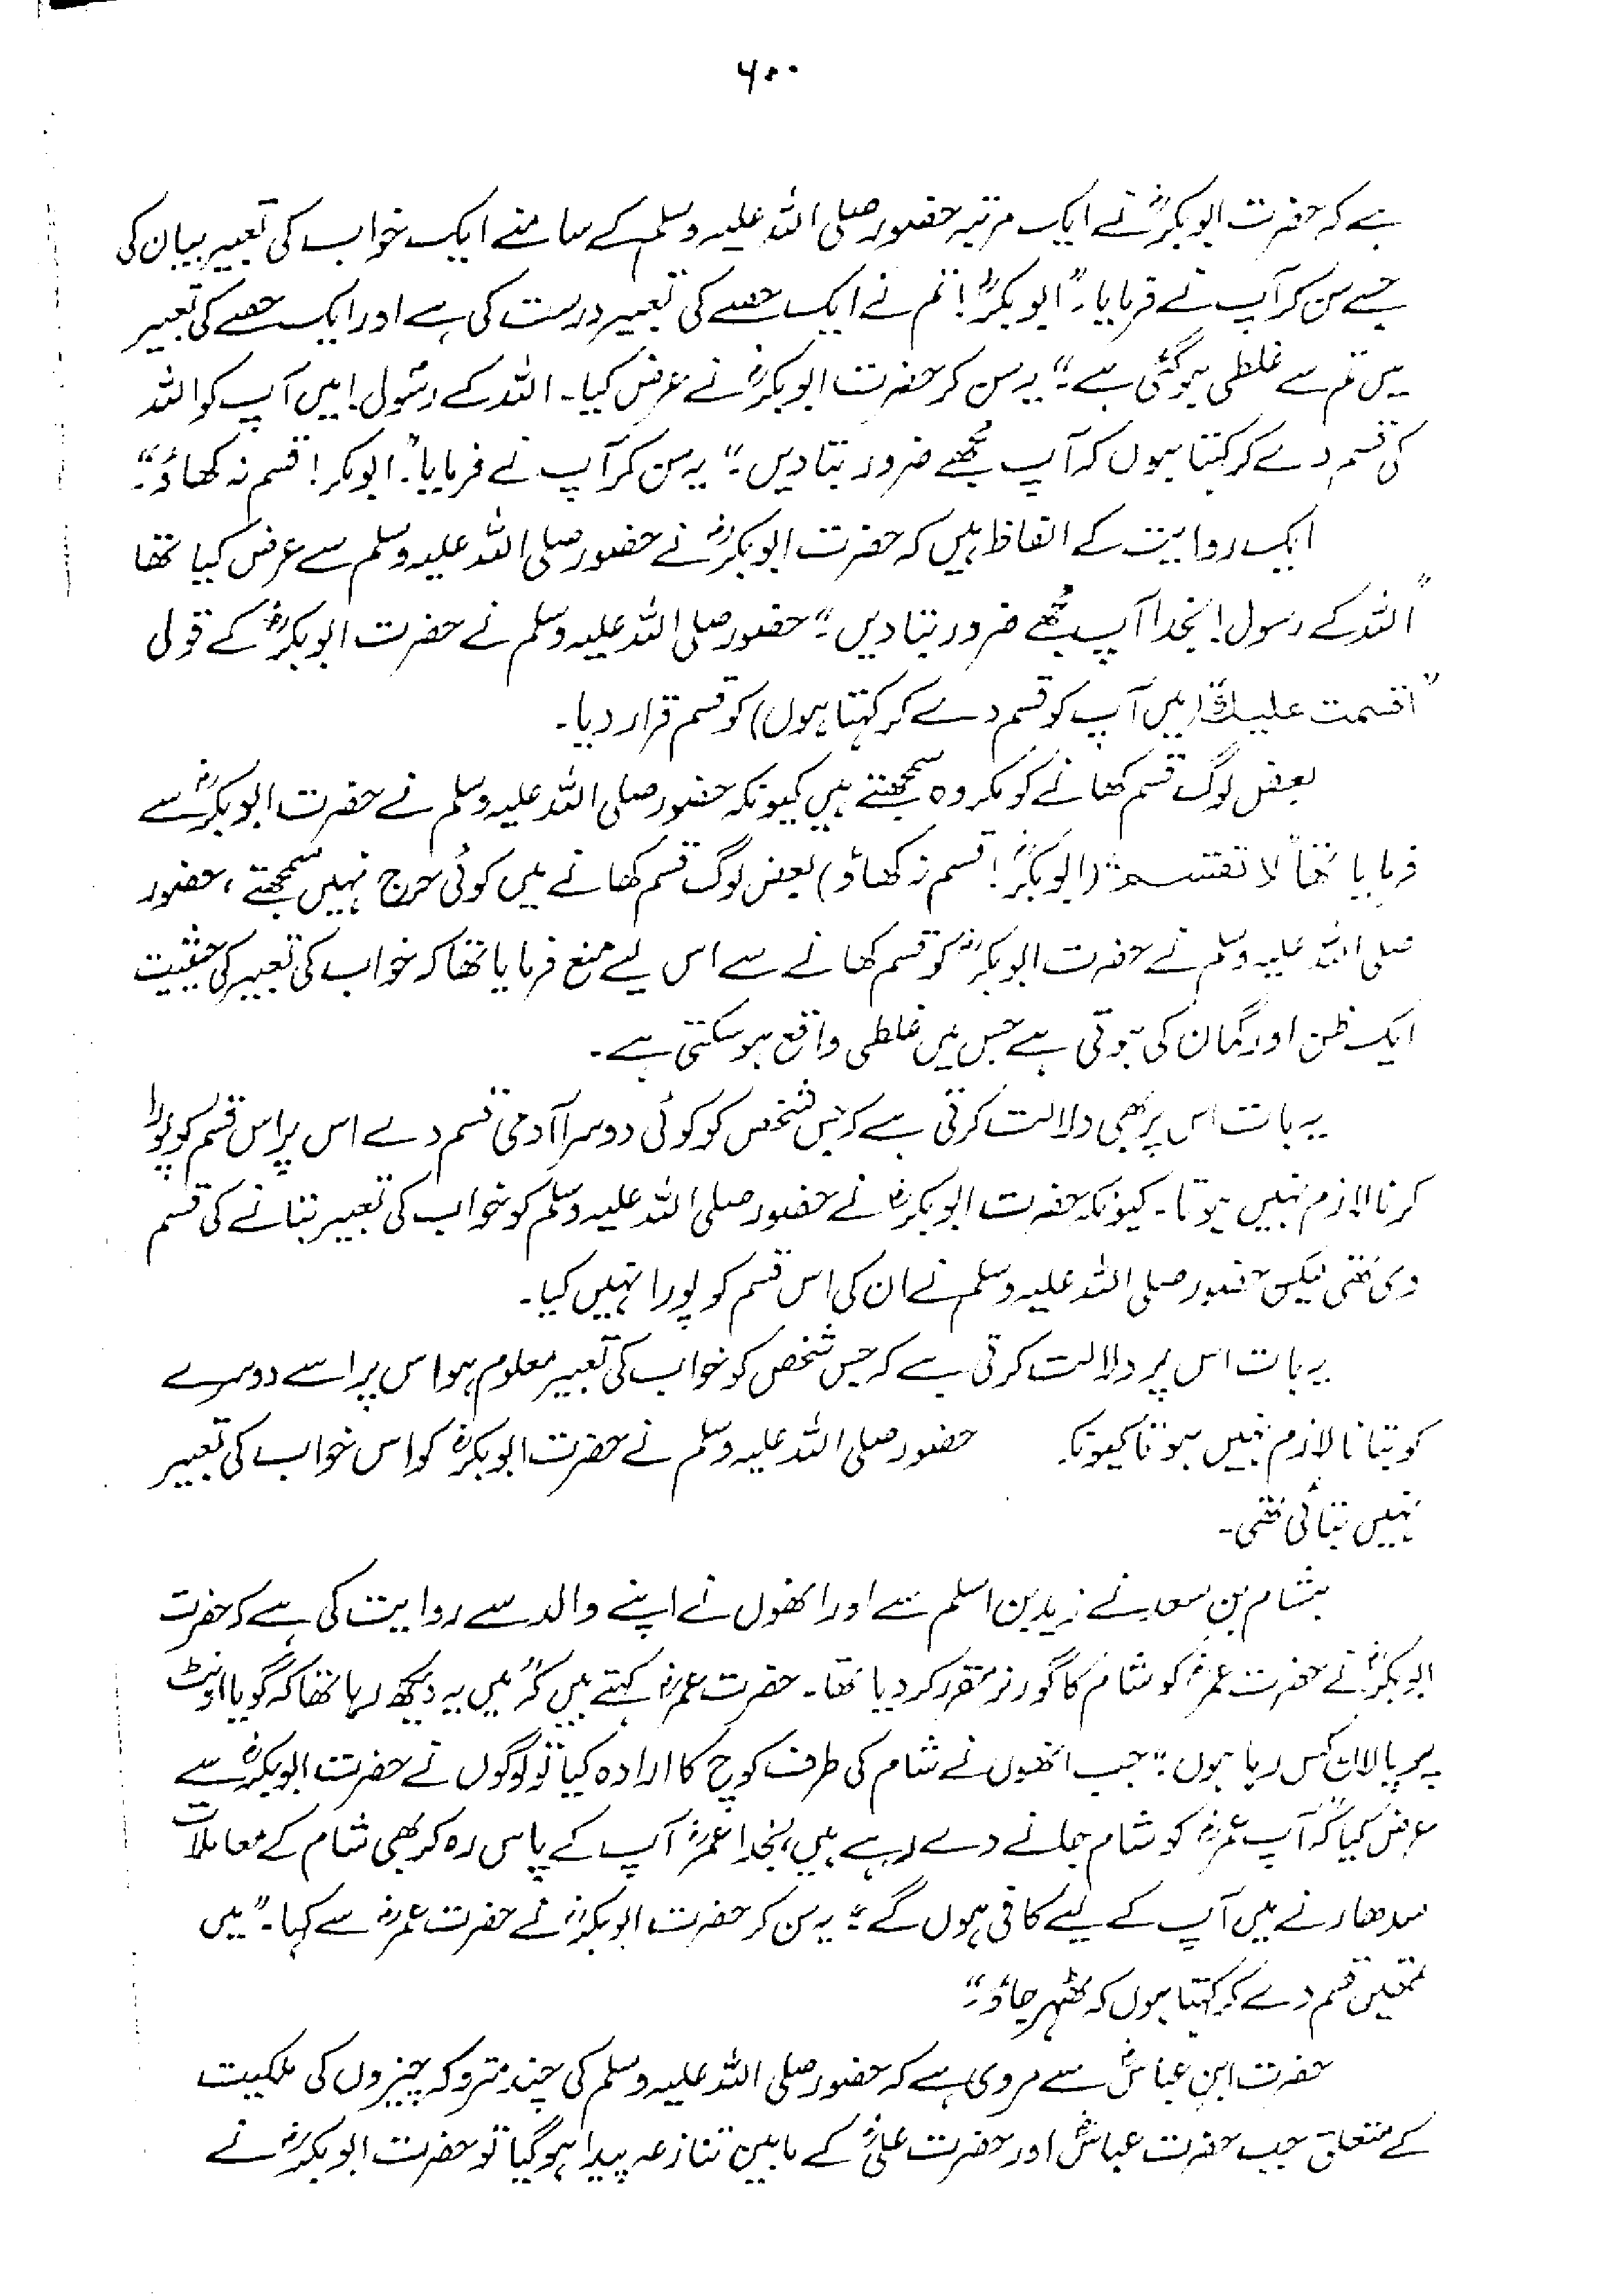 ۶۰۰
ہے کہ حضرت ابوبکرؓ نے ایک مرتبہ حضور صلی اللہ علیہ وسلم کے سامنے ایک خواب کی تعبیر بیان کی
جسے سن کر آپ نے فرمایا۔ "ابوبکرؓ! تم نے ایک حصے کی تعبیر درست کی ہے اور ایک حصے کی تعبیر
میں تم سے غلطی ہوگئی ہے۔" یہ سن کر حضرت ابوبکرؓ نے عرض کیا۔ اللہ کے رسول! میں آپ کو اللہ
کی قسم دے کر کہتا ہوں کہ آپ مجھے ضرور بتا دیں۔" یہ سن کر آپ نے فرمایا "ابوبکر! قسم نہ کھاؤ۔"
ایک روایت کے الفاظ ہیں کہ حضرت ابوبکرؓ نے حضور صلی اللہ علیہ وسلم سے عرض کیا تھا
"اللہ کے رسول! بخدا آپ مجھے ضرور بتا دیں۔" حضور صلی اللہ علیہ وسلم نے حضرت ابوبکرؓ کے قول
"اقسمت علیک" (میں آپ کو قسم دے کر کہتا ہوں) کو قسم قرار دیا۔
بعض لوگ قسم کھانے کو مکروہ سمجھتے ہیں کیونکہ حضور صلی اللہ علیہ وسلم نے حضرت ابوبکرؓ سے
فرمایا تھا "لا تقسم" (ابوبکرؓ! قسم نہ کھاؤ) بعض لوگ قسم کھانے میں کوئی حرج نہیں سمجھتے، حضور
صلی اللہ علیہ وسلم نے حضرت ابوبکرؓ کو قسم کھانے سے اس لیے منع فرمایا تھا کہ خواب کی تعبیر کی حیثیت
ایک ظن اور گمان کی ہوتی ہے جس میں غلطی واقع ہو سکتی ہے۔
یہ بات اس پر بھی دلالت کرتی ہے کہ جس شخص کو کوئی دوسرا آدمی قسم دے اس پر اس قسم کو پورا
کرنا لازم نہیں ہوتا۔ کیونکہ حضرت ابوبکرؓ نے حضور صلی اللہ علیہ وسلم کو خواب کی تعبیر بتانے کی قسم
دی تھی لیکن حضور صلی اللہ علیہ وسلم نے ان کی اس قسم کو پورا نہیں کیا۔
یہ بات اس پر دلالت کرتی ہے کہ جس شخص کو خواب کی تعبیر معلوم ہو اس پر اسے دوسرے
کو بتانا لازم نہیں ہوتا کیونکہ حضور صلی اللہ علیہ وسلم نے حضرت ابوبکرؓ کو اس خواب کی تعبیر
نہیں بتائی تھی۔
ہشام بن سعد نے زید بن اسلم سے اور انھوں نے اپنے والد سے روایت کی ہے کہ حضرت
ابوبکرؓ نے حضرت عمرؓ کو شام کا گورنر مقرر کر دیا تھا۔ حضرت عمرؓ کہتے ہیں کہ "میں یہ دیکھ رہا تھا کہ گویا اونٹ
پر پالان کس رہا ہوں۔" جب انھوں نے شام کی طرف کوچ کا ارادہ کیا تو لوگوں نے حضرت ابوبکرؓ سے
عرض کیا کہ "آپ عمرؓ کو شام جانے دے رہے ہیں، بخدا عمرؓ آپ کے پاس رہ کر بھی شام کے معاملات
سدھارنے میں آپ کے لیے کافی ہوں گے۔" یہ سن کر حضرت ابوبکرؓ نے حضرت عمرؓ سے کہا۔ "میں
تمھیں قسم دے کر کہتا ہوں کہ ٹھہر جاؤ۔"
حضرت ابن عباسؓ سے مروی ہے کہ حضور صلی اللہ علیہ وسلم کی چند متروکہ چیزوں کی ملکیت
کے متعلق جب حضرت عباسؓ اور حضرت علیؓ کے مابین تنازعہ پیدا ہوگیا تو حضرت ابوبکرؓ نے